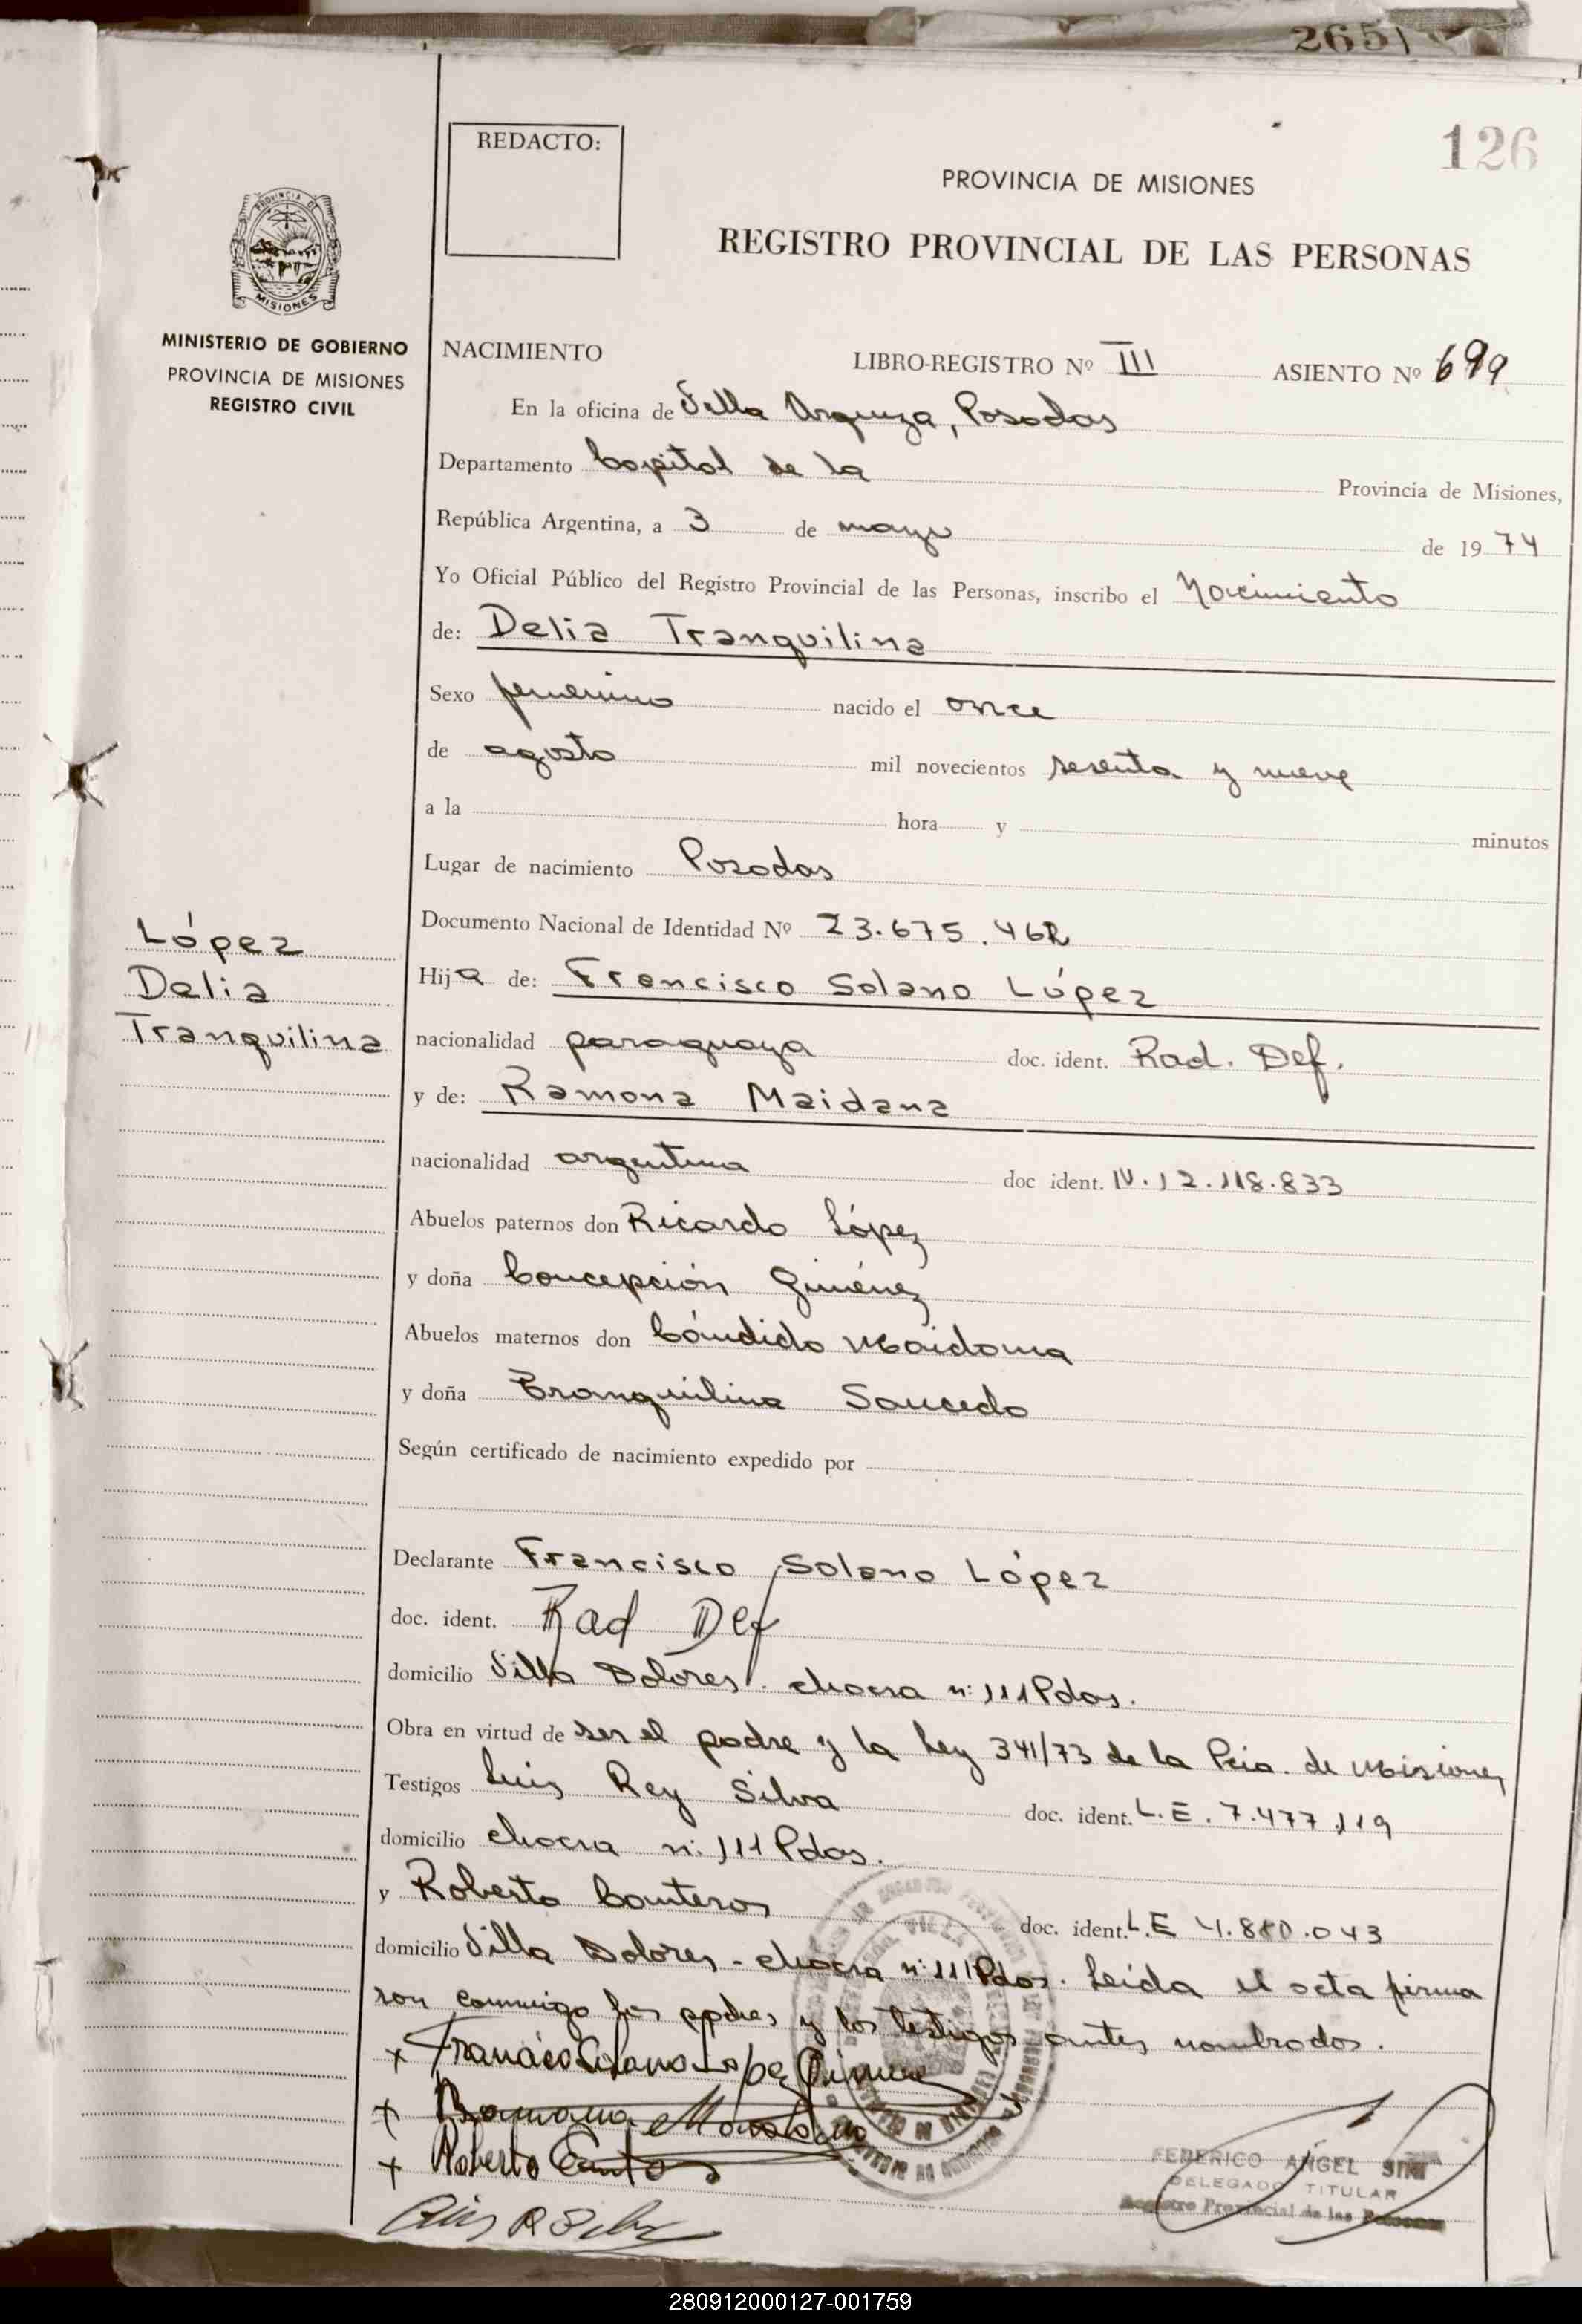 2651
126
REDACTO:
PROVINCIA DE MISIONES
REGISTRO PROVINCIAL DE LAS PERSONAS
PROVINCIA DE
MISIONES
MINISTERIO DE GOBIERNO
PROVINCIA DE MISIONES
REGISTRO CIVIL
NACIMIENTO LIBRO-REGISTRO Nº III ASIENTO Nº 699
En la oficina de Villa Urquiza, Posadas
Departamento Capital de la Provincia de Misiones,
República Argentina, a 3 de mayo de 1974
Yo Oficial Público del Registro Provincial de las Personas, inscribo el Nacimiento
de: Delia Tranquilina
Sexo femenino nacido el once
de agosto mil novecientos sesenta y nueve
a la hora y minutos
Lugar de nacimiento Posadas
Documento Nacional de Identidad Nº 23.675.462
López
Delia
Tranquilina
Hija de: Francisco Solano López
nacionalidad paraguaya doc. ident. Rad. Def.
y de: Ramona Maidana
nacionalidad argentina doc ident. N. 12.118.833
Abuelos paternos don Ricardo López
y doña Concepción Giménez
Abuelos maternos don Cándido Maidana
y doña Tranquilina Saucedo
Según certificado de nacimiento expedido por
Declarante Francisco Solano López
doc. ident. Rad Def
domicilio Villa Dolores. chacra n: 111 Pdas.
Obra en virtud de ser el padre y la Ley 341/73 de la Pcia. de Misiones
Testigos Luis Rey Silva doc. ident. L.E. 7.477.119
domicilio chacra n: 111 Pdas.
y Roberto Canteros doc. ident. L.E 4.880.043
domicilio Villa Dolores - chacra n: 111 Pdas. Leída el acta firma
ron conmigo los padres y los testigos antes nombrados.
x Francisco Solano Lopez Gimenez
x Ramona
x Roberto
FEDERICO ANGEL
DELEGADO TITULAR
Registro Provincial de las Personas
280912000127-001759